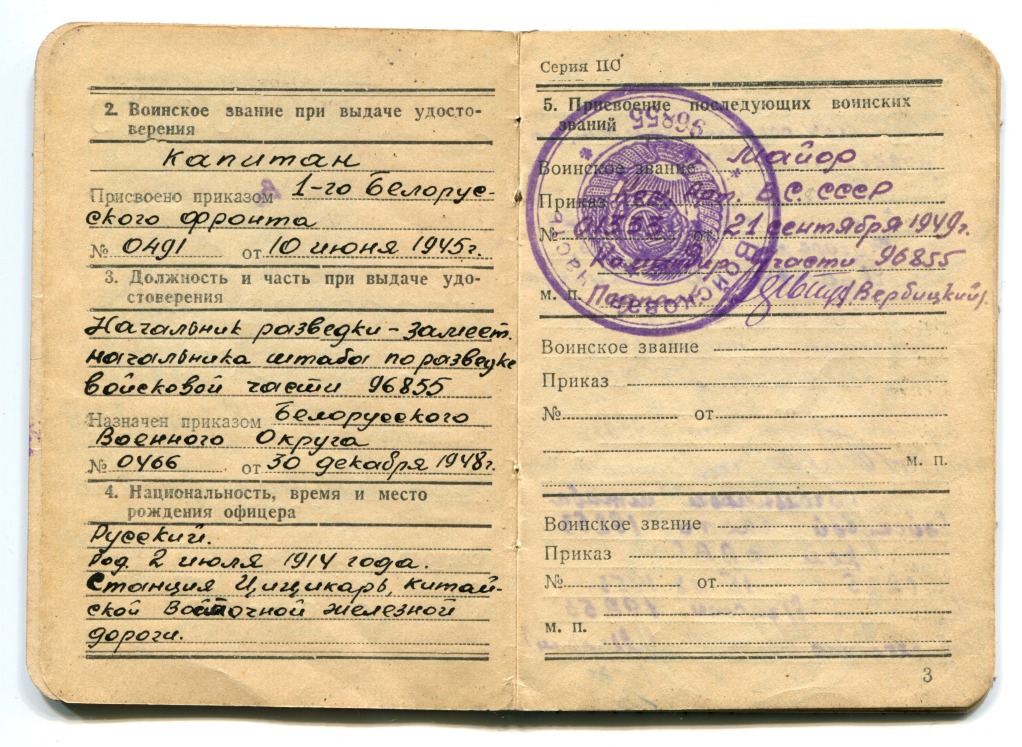 2. Воинское звание при выдаче удосто-
верения
Капитан
Присвоено приказом 1-го Белорус-
ского фронта
№ 0491 от 10 июня 1945г.
3. Должность и часть при выдаче удо-
стоверения
Начальник разведки - замест.
начальника штаба по разведке
войсковой части 96855
Назначен приказом Белорусского
Военного Округа
№ 0466 от 30 декабря 1948г.
4. Национальность, время и место
рождения офицера
Русский.
Род. 2 июля 1914 года.
Станция Цицикарь, китай-
ской Восточной железной
дороги.
Серия ПО
5. Присвоение последующих воинских
званий
Воинское звание Майор
Приказ В.С. СССР
№ от 21 сентября 1949г.
части 96855
м. п. Вербицкий
96855
Войсковая часть
Воинское звание
Приказ
№ от
м. п.
Воинское звание
Приказ
№ от
м. п.
3